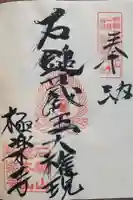 奉拝
石鎚蔵王大権現
極楽寺